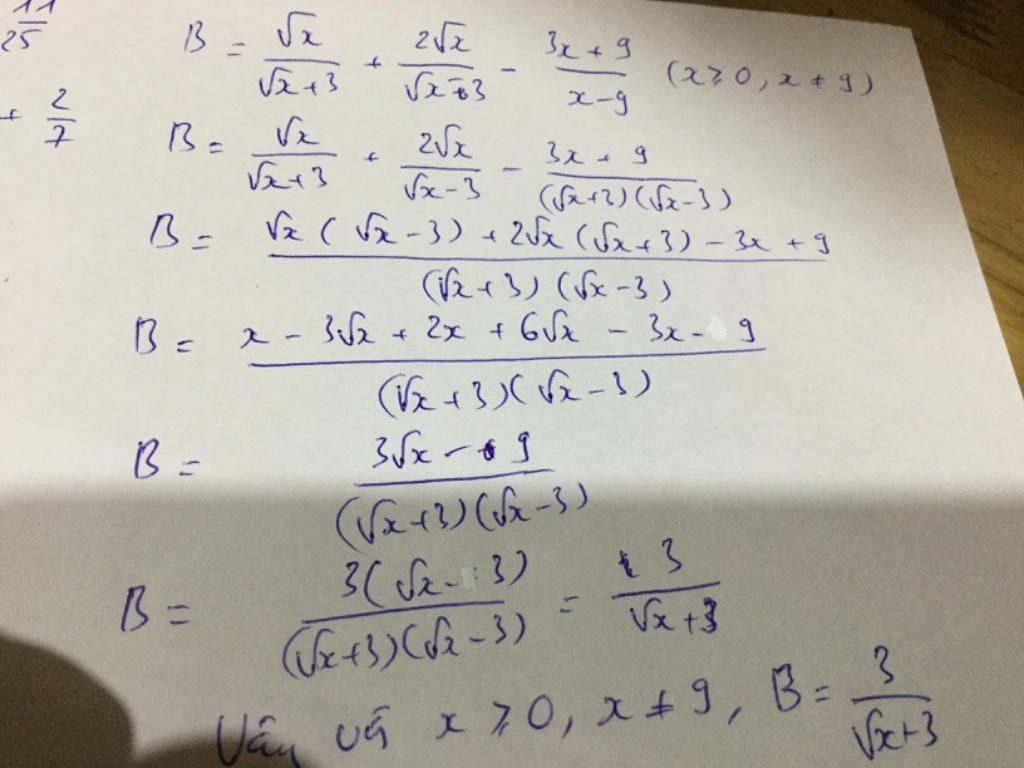 11/25
+ 2/7
B = √x/(√x+3) + 2√x/(√x-3) - (3x+9)/(x-9) (x ≥ 0, x ≠ 9)
B = √x/(√x+3) + 2√x/(√x-3) - (3x+9)/((√x+3)(√x-3))
B = (√x(√x-3) + 2√x(√x+3) - 3x + 9)/((√x+3)(√x-3))
B = (x - 3√x + 2x + 6√x - 3x - 9)/((√x+3)(√x-3))
B = (3√x - 9)/((√x+3)(√x-3))
B = 3(√x - 3)/((√x+3)(√x-3)) = 3/(√x+3)
x ≥ 0, x ≠ 9, B = 3/(√x+3)